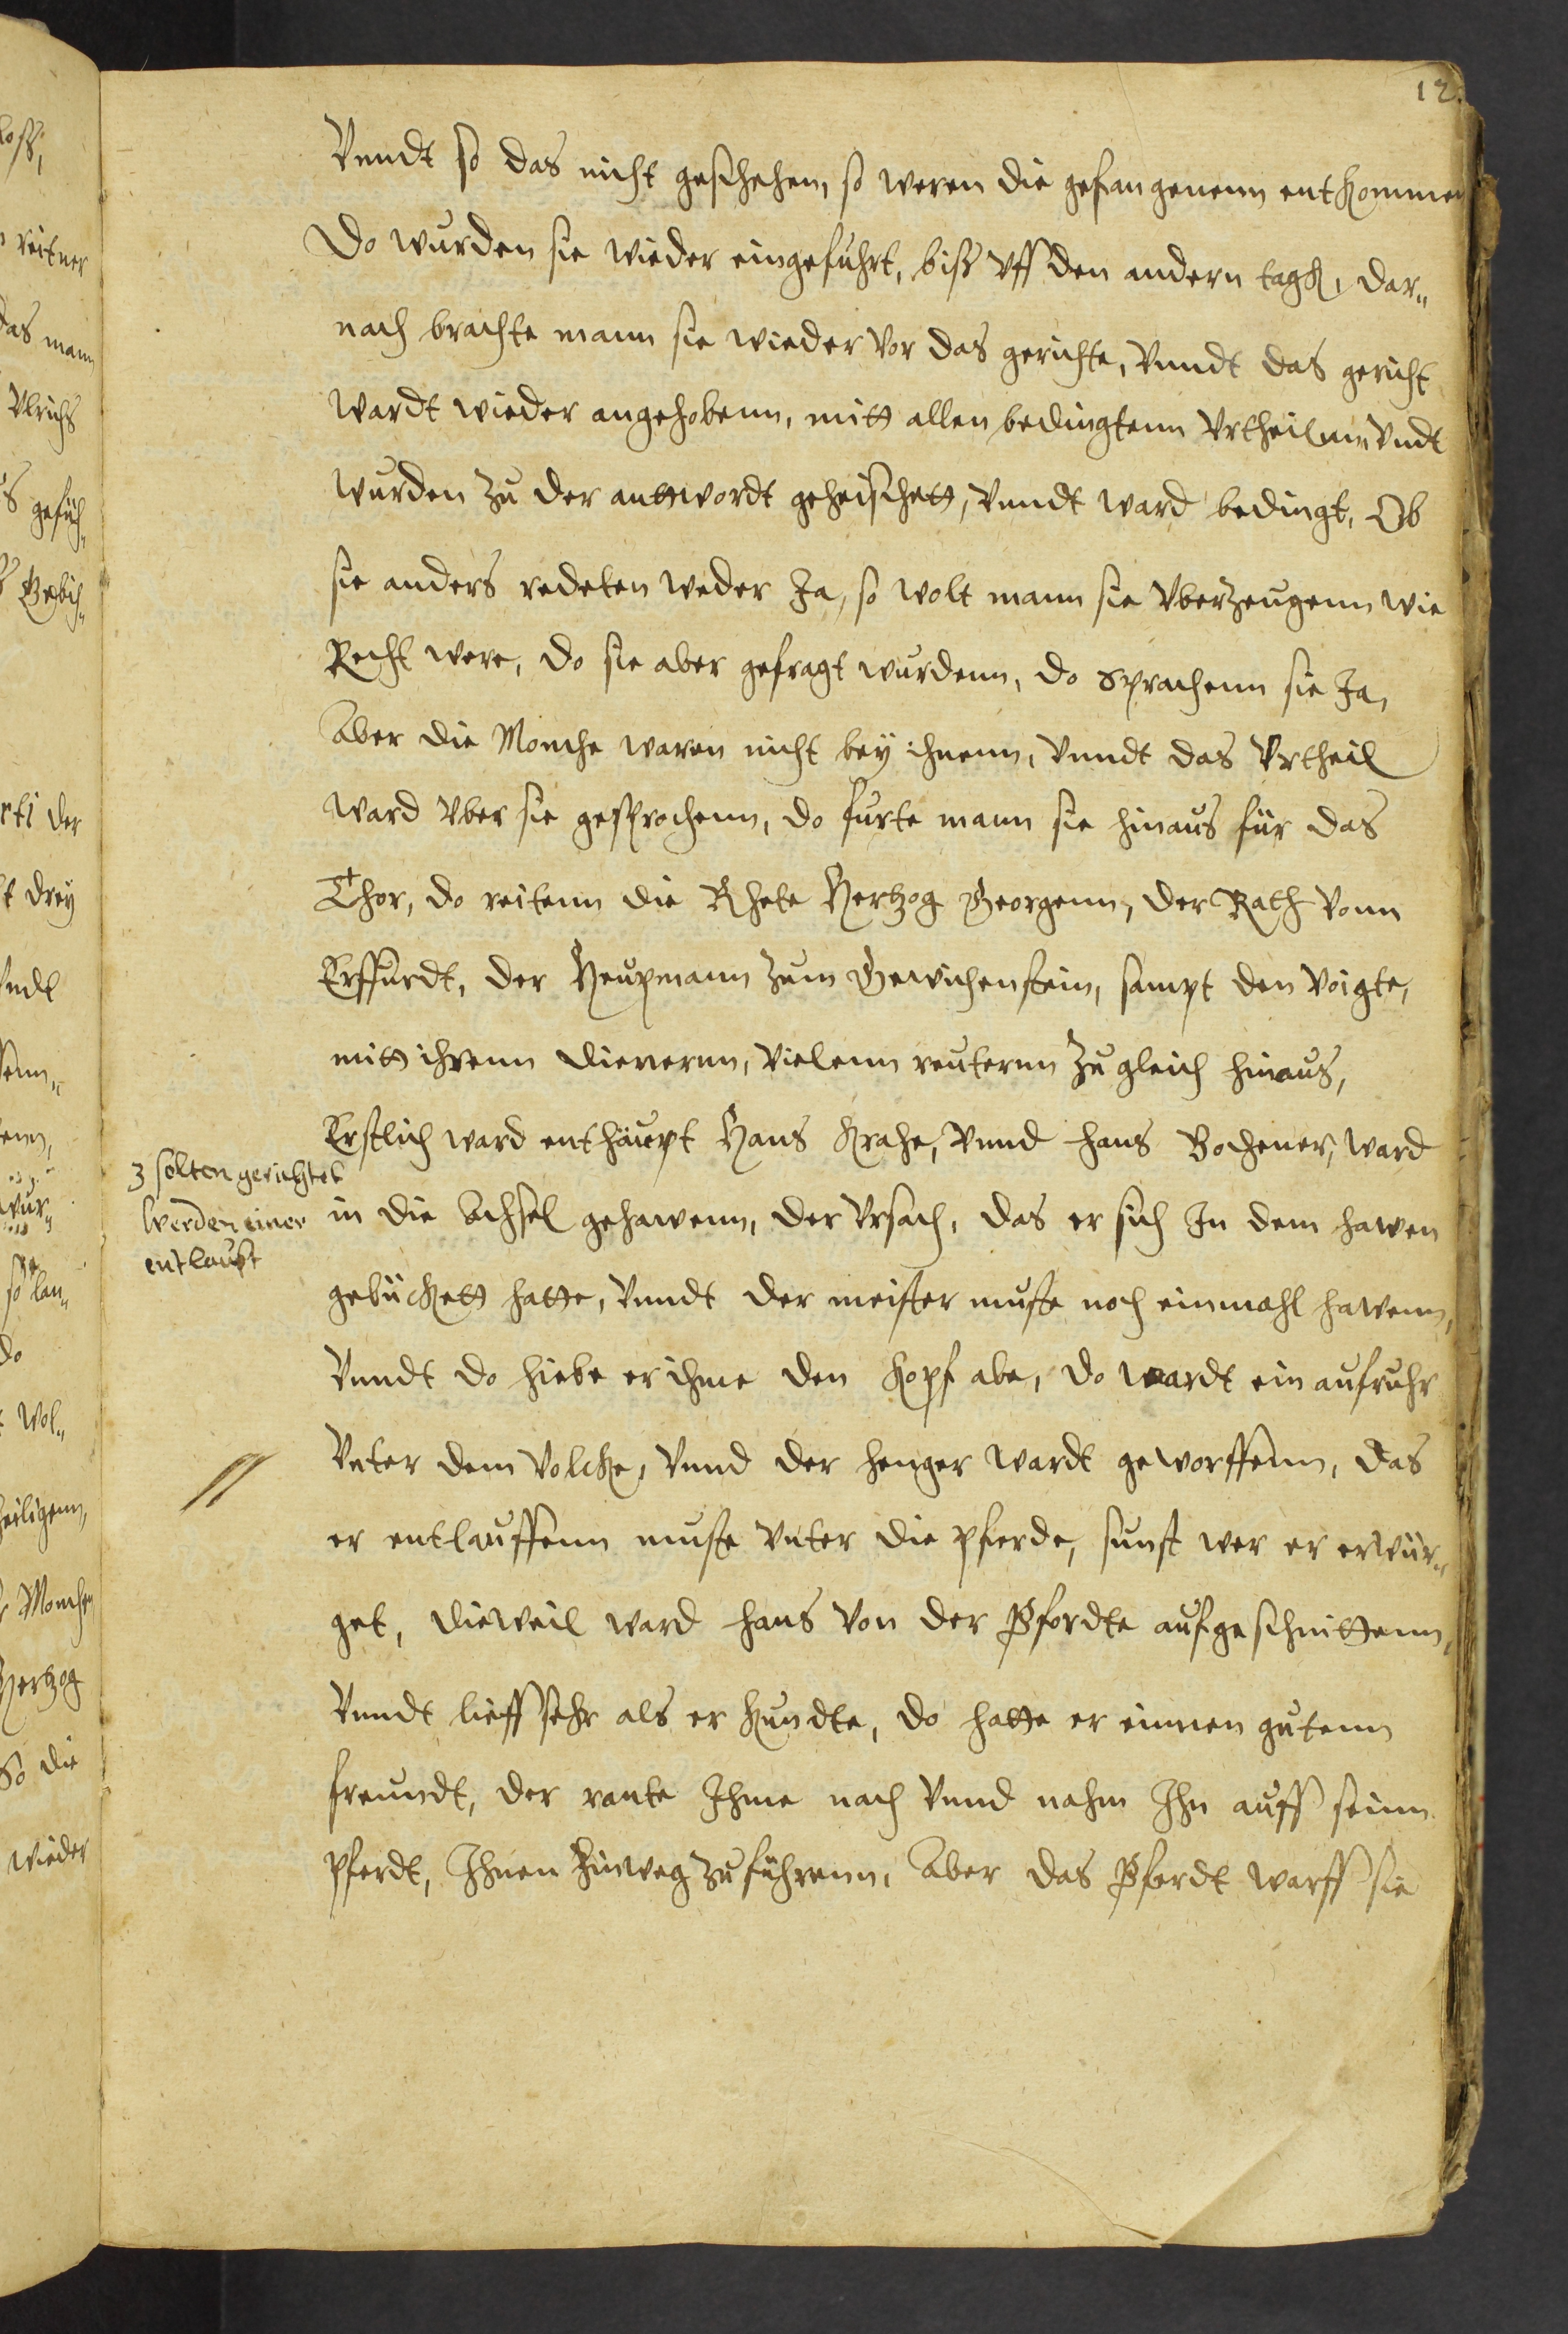 12.
Vnndt so das nicht geschehen, so weren die gefangenenn entkommen
Do wurden sie wieder eingefuhrt, biß vff den andern tagk, dar„
nach brachte mann sie wieder vor das gerichte, vnndt das gericht
wardt wieder angehobenn, mitt allen bedingtenn vrtheilnn vndt
wurden zu der anttwordt geheischett, vnndt ward bedingt, Ob
sie anders redeten weder Ja, so wolt mann sie vberzeugenn wie
Recht were, do sie aber gefragt wurdenn, do sprachenn sie Ja,
Aber die Monche waren nicht bey ihnenn, vnndt das vrtheil
ward vber sie gesprochenn, do furte mann sie hinaus für das
Thor, do reitenn die Rhete Hertzog Georgenn, der Rath vonn
Erffurdt, der Heupmann zum Gewichenstein, sampt den voigte,
mitt ihrenn dienernn, vielenn reuternn zu gleich hinaus,
Erstlich ward enthäupt Hans Krahe, vnnd hans Bochener, ward
3 solten gerichtet
werden einer
entlaufft
in die Achsel gehawenn, der vrsach, das er sich In dem hawen
gebückett hatte, vnndt der meister muste noch einmahl hawenn,
vnndt do hiebe er ihme den kopf abe, do wardt ein aufruhr
vnter dem volcke, vnnd der henger wardt geworffenn, das
er entlauffenn muste vnter die pferde, sunst wer er erwür„
get, dieweil ward hans von der Pfordte aufgeschnittenn,
vnndt lieff sehr als er kundte, do hatte er einnen gutenn
freundt, der rante Ihme nach vnnd nahm Ihn auff seinn
pferdt, Ihnen hinweg zu führenn, Aber das Pferdt warff sie